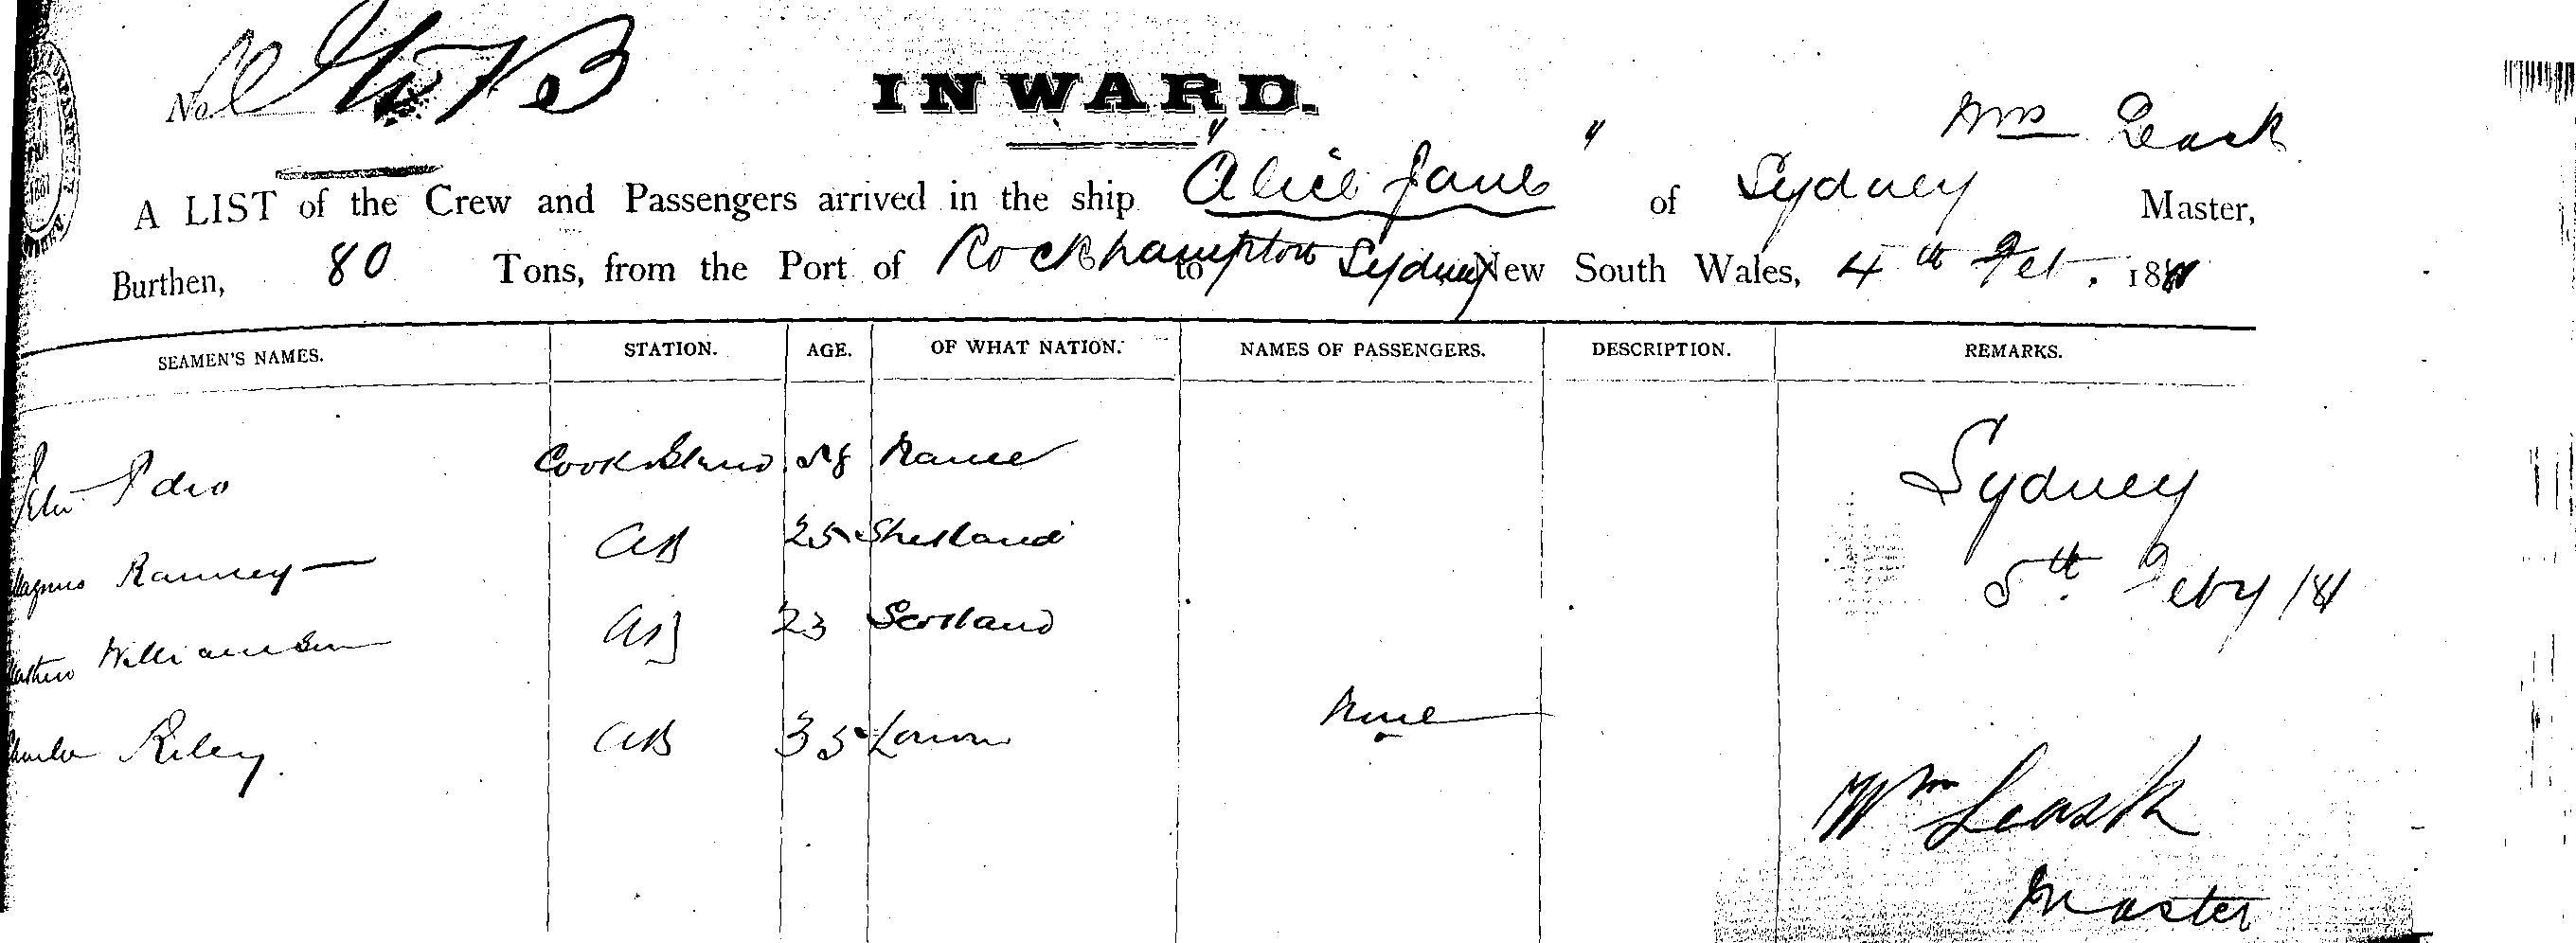 No.
INWARD.
Wm Leask
A LIST of the Crew and Passengers arrived in the ship "Alice Jane" of Sydney Master,
Burthen, 80 Tons, from the Port of Rockhampton to Sydney New South Wales, 4th Feb. 1881
SEAMEN'S NAMES. STATION. AGE. OF WHAT NATION. NAMES OF PASSENGERS. DESCRIPTION. REMARKS.
Sydney
Peter Pdro 58
Magnus Ramsey AB 25 Shetland
5th Feby /81
Williamson AB 23 Scotland
Charles Riley AB 35 None
Wm Leask
Master